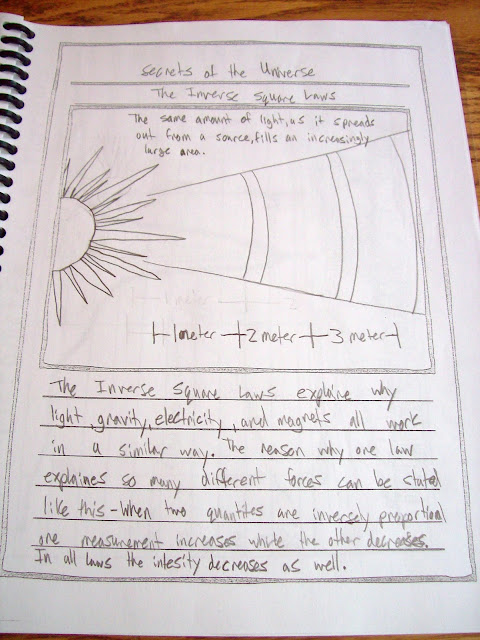 secrets of the Universe
The Inverse Square Laws
The same amount of light, as it spreads
out from a source, fills an increasingly
large area.
1 meter 2
1 meter 2 meter 3 meter
The Inverse Square Laws explaine why
light, gravity, electricity, and magnets all work
in a similar way. The reason why one law
explaines so many different forces can be stated
like this - When two quantites are inversely proportional
one measurement increases while the other decreases.
In all laws the intesity decreases as well.